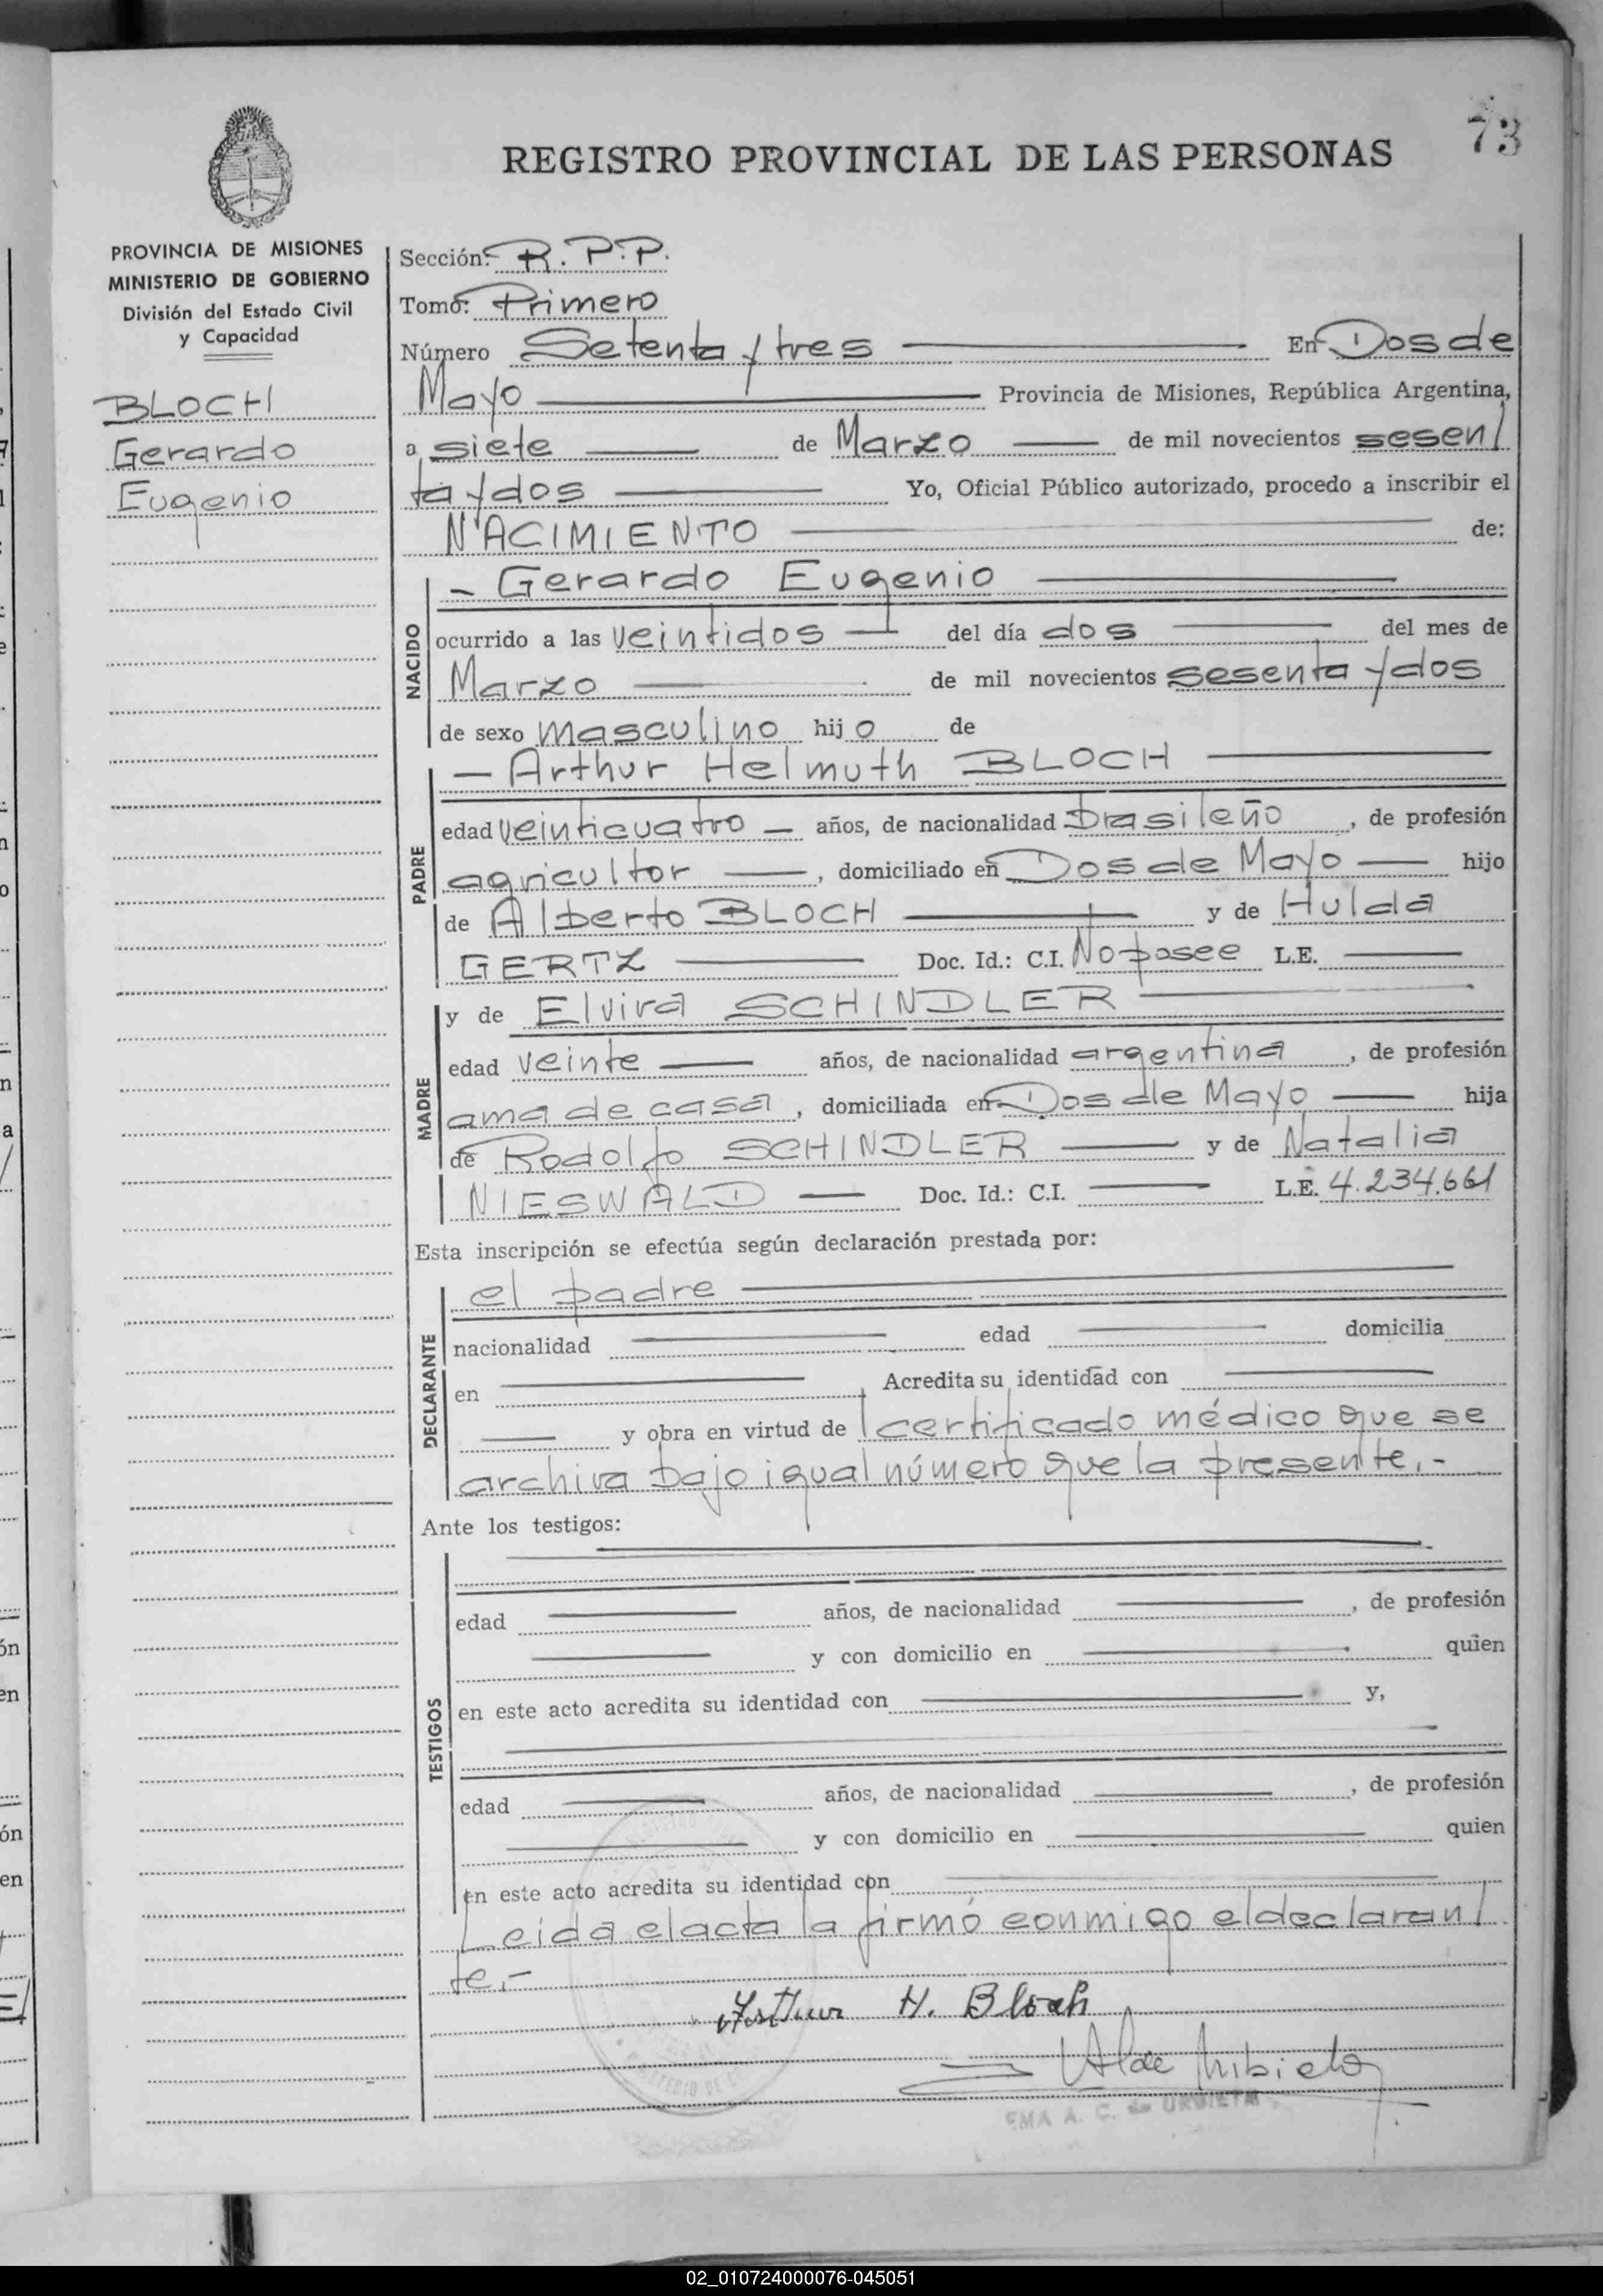 73
REGISTRO PROVINCIAL DE LAS PERSONAS
PROVINCIA DE MISIONES
MINISTERIO DE GOBIERNO
División del Estado Civil
y Capacidad
BLOCH
Gerardo
Eugenio
Sección: R.P.P.
Tomo: Primero
Número Setenta y tres En Dos de
Mayo Provincia de Misiones, República Argentina,
a siete de Marzo de mil novecientos sesen/
ta y dos Yo, Oficial Público autorizado, procedo a inscribir el
NACIMIENTO de:
NACIDO
- Gerardo Eugenio
ocurrido a las veintidos del día dos del mes de
Marzo de mil novecientos sesenta y dos
de sexo masculino hijo de
PADRE
- Arthur Helmuth BLOCH
edad veinticuatro - años, de nacionalidad brasileño, de profesión
agricultor, domiciliado en Dos de Mayo hijo
de Alberto BLOCH y de Hulda
GERTZ Doc. Id.: C.I. No posee L.E.
MADRE
y de Elvira SCHINDLER
edad veinte años, de nacionalidad argentina, de profesión
ama de casa, domiciliada en Dos de Mayo hija
de Rodolfo SCHINDLER y de Natalia
NIESWALD Doc. Id.: C.I. L.E. 4.234.661
Esta inscripción se efectúa según declaración prestada por:
DECLARANTE
el padre
nacionalidad edad domicilia
en Acredita su identidad con
y obra en virtud de l certificado médico que se
archiva bajo igual número que la presente.-
Ante los testigos:
TESTIGOS
edad años, de nacionalidad , de profesión
y con domicilio en quien
en este acto acredita su identidad con y,
edad años, de nacionalidad , de profesión
y con domicilio en quien
en este acto acredita su identidad con
Leida el acta la firmó conmigo el declaran/
te.-
Arthur H. Bloch
EMA A. C. de URBIETA
02_010724000076-045051